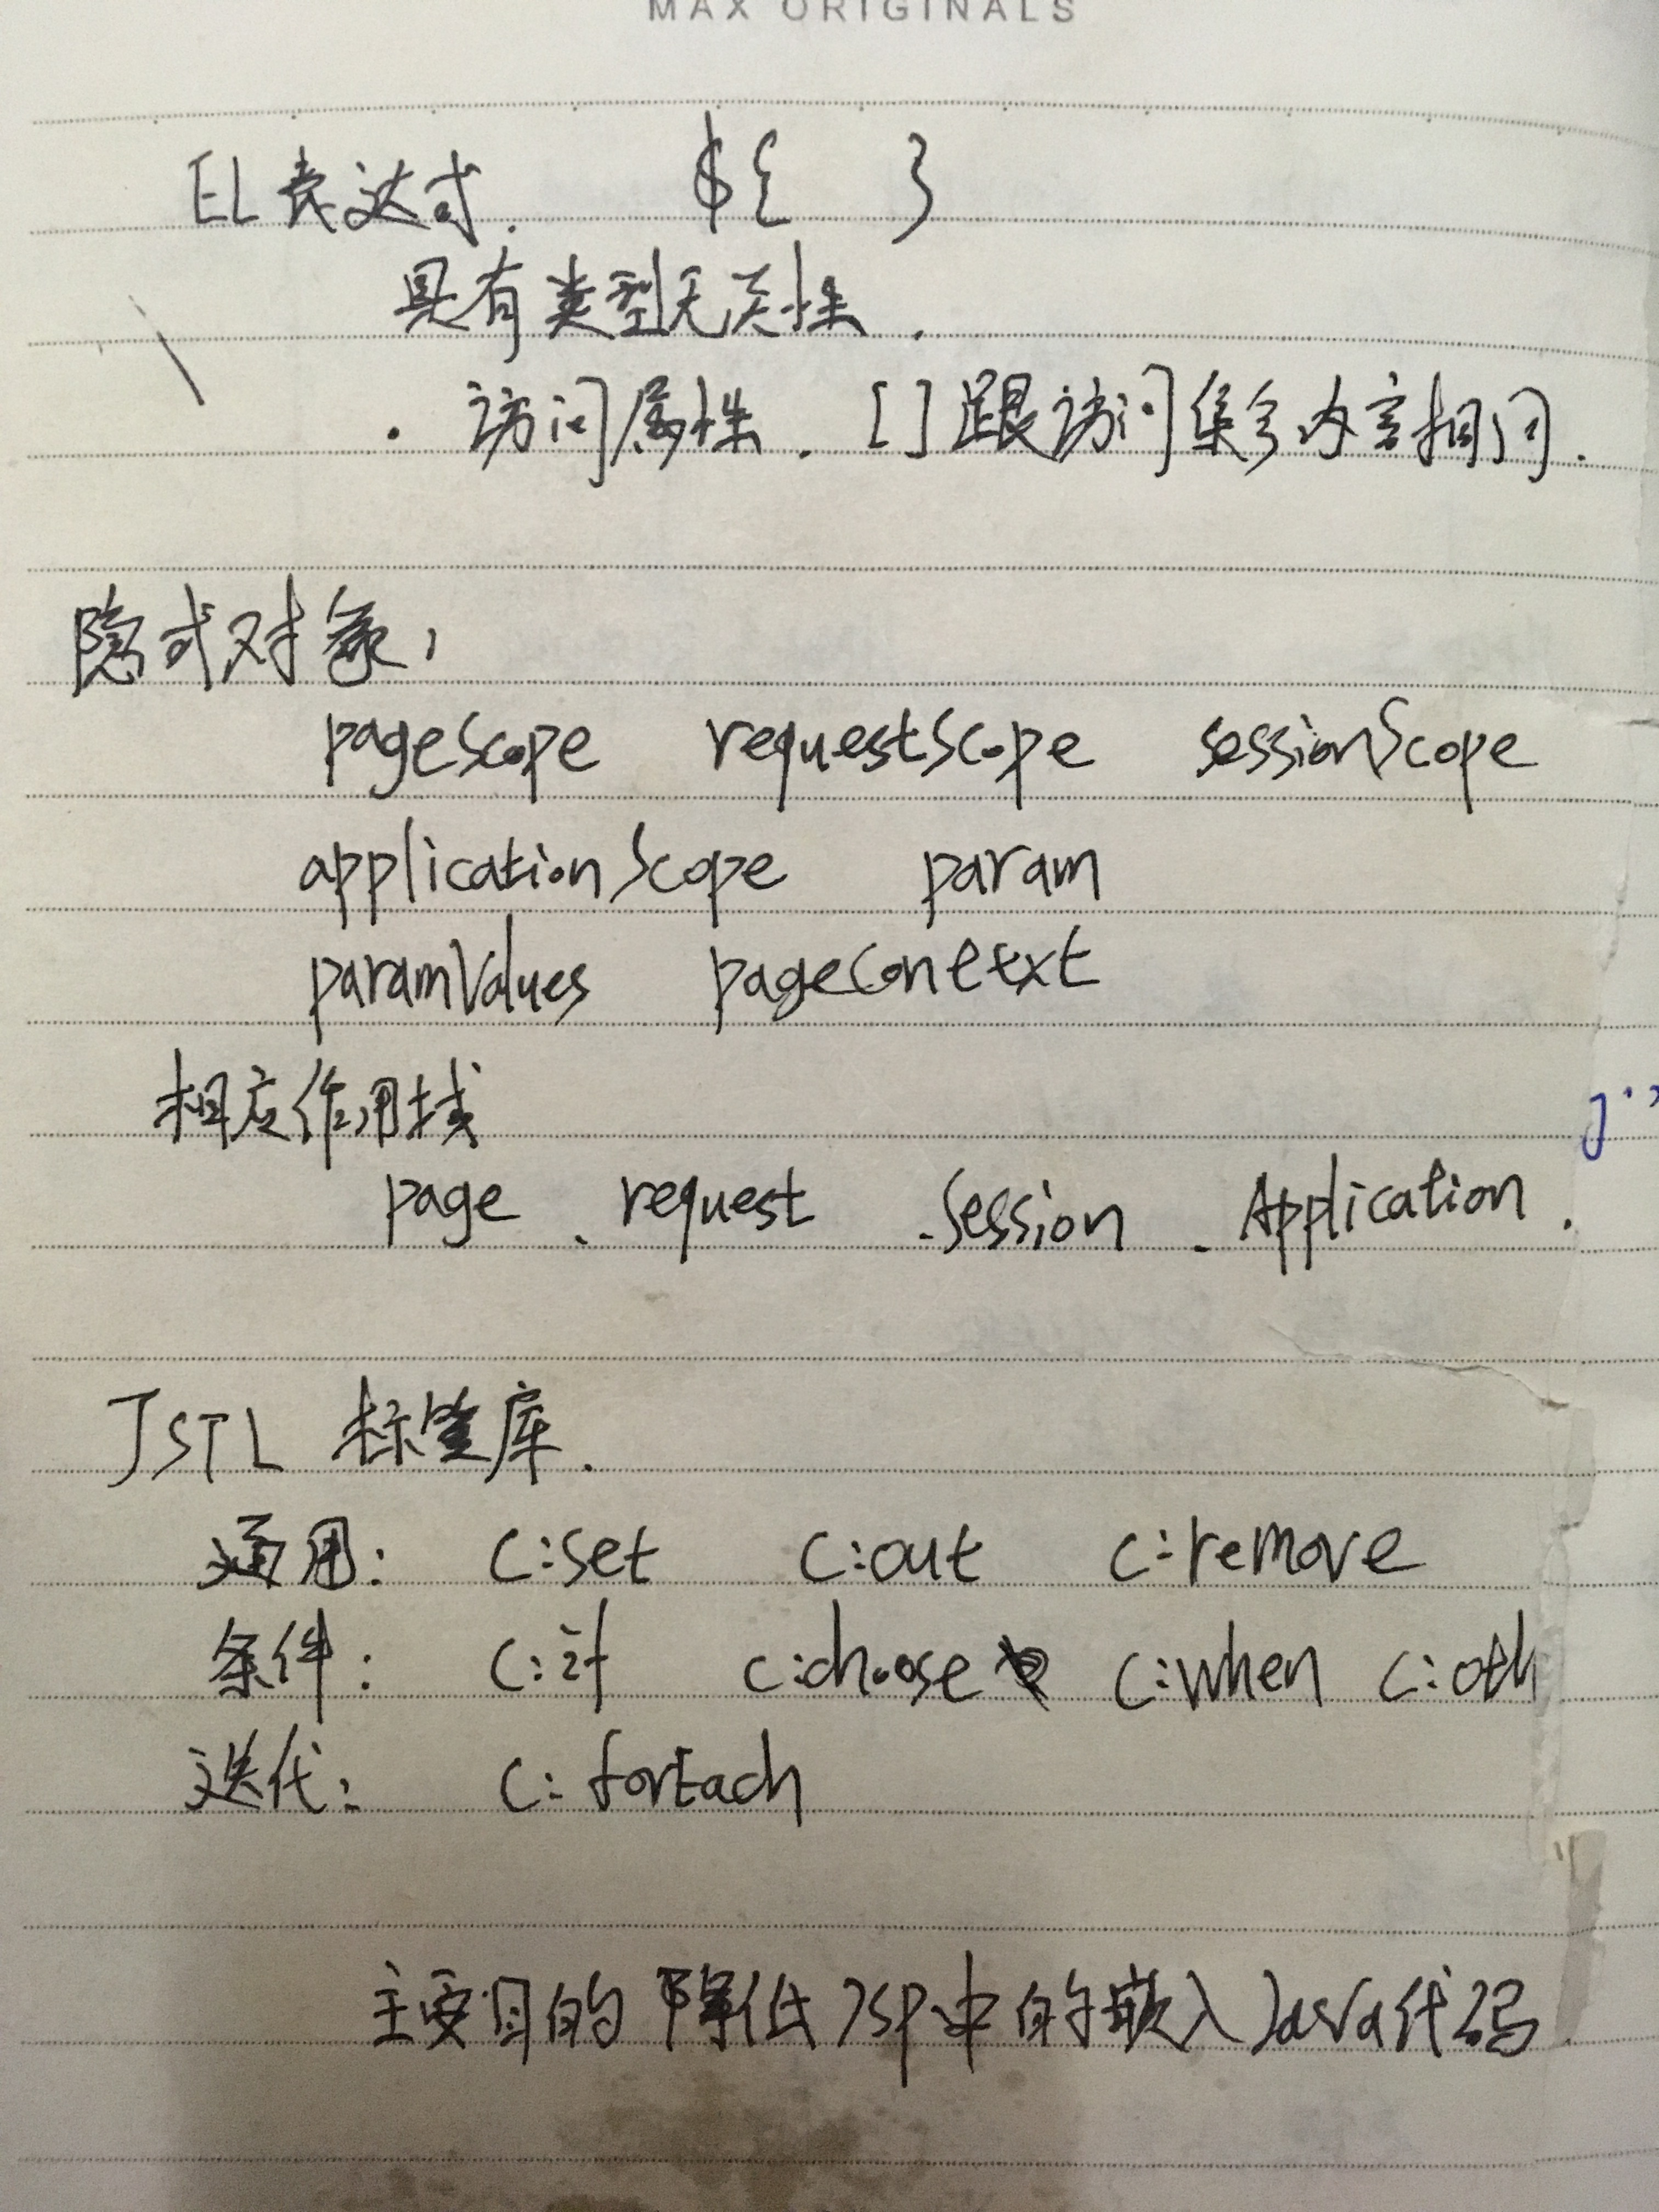 MAX ORIGINALS
EL表达式. ${ }
具有类型无关性.
. 访问属性. []跟访问集合内容相同.
隐式对象,
pageScope requestScope sessionScope
applicationScope param
paramValues pageContext
相应作用域
page . request . Session . Application .
JSTL 标签库.
通用: C:set C:out C:remove
条件: C:if C:choose C:when C:oth
迭代: C:forEach
主要目的 降低JSP中的嵌入Java代码